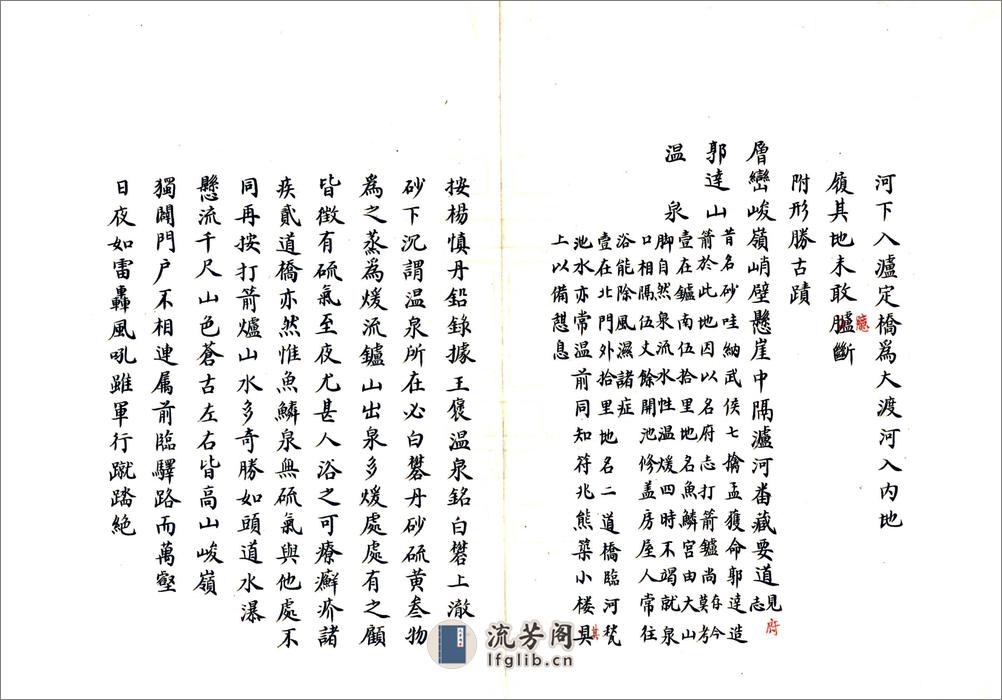 河下入瀘定橋為大渡河入内地
履其地未敢臚斷
臆
附形勝古蹟
層巒峻嶺峭壁懸崖中隔瀘河畨藏要道見
志
府
郭達山
昔名砂哇納武侯七擒孟獲命郭達造
箭於此地因以名府志打箭鑪尚存今
莫考
温泉
壹在鑪南伍拾里地名魚鱗宫由大山
脚自然泉流水性温煖四時不竭就泉
口相隔伍丈餘開池修盖房屋人常往
浴能除風濕諸症
壹在北門外拾里地名二道橋臨河甃
池水亦常温前同知符兆熊築小楼具
其
上以備憇息
按楊慎丹鉛錄據王褒温泉銘白礬上澈
砂下沉謂温泉所在必白礬丹砂硫黄叁物
為之蒸為煖流鑪山出泉多煖處處有之顧
皆徴有硫氣至夜尤甚人浴之可療癬疥諸
疾貳道橋亦然惟魚鱗泉無硫氣與他處不
同再按打箭爐山水多奇勝如頭道水瀑
懸流千尺山色蒼古左右皆高山峻嶺
獨闢門户不相連属前臨驛路而萬壑
日夜如雷轟風吼雖軍行蹴踏絶
流芳阁
lfglib.cn